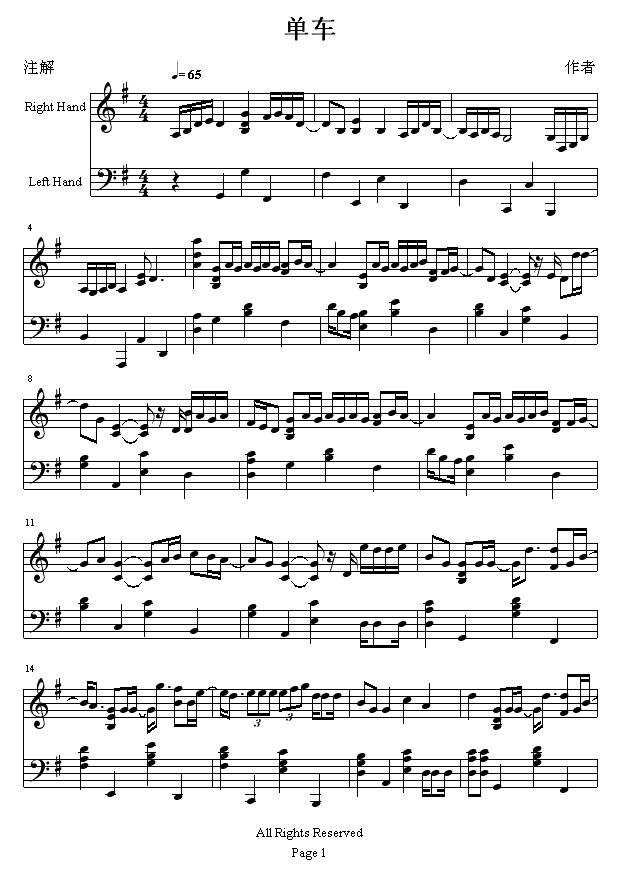 单车
注解
作者
♩= 65
Right Hand
Left Hand
4
8
11
14
3
3
All Rights Reserved
Page 1